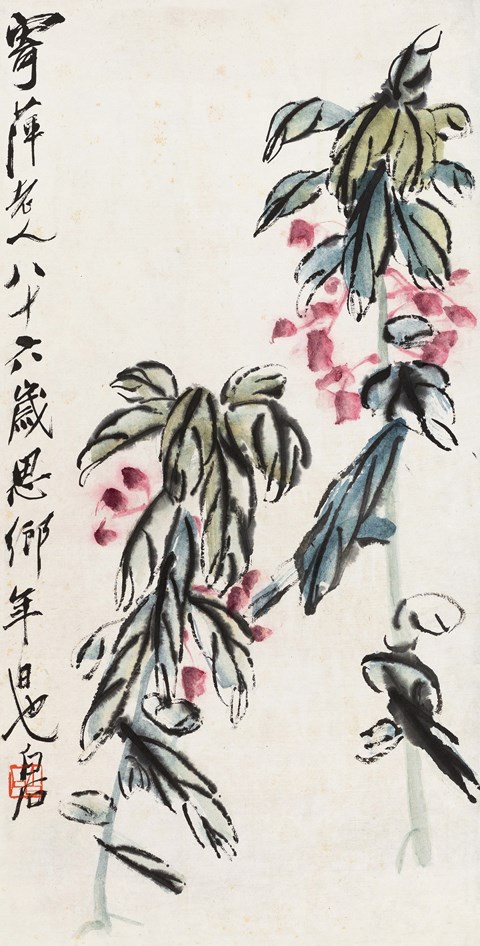 寄萍老人八十六歲思鄉年也白石